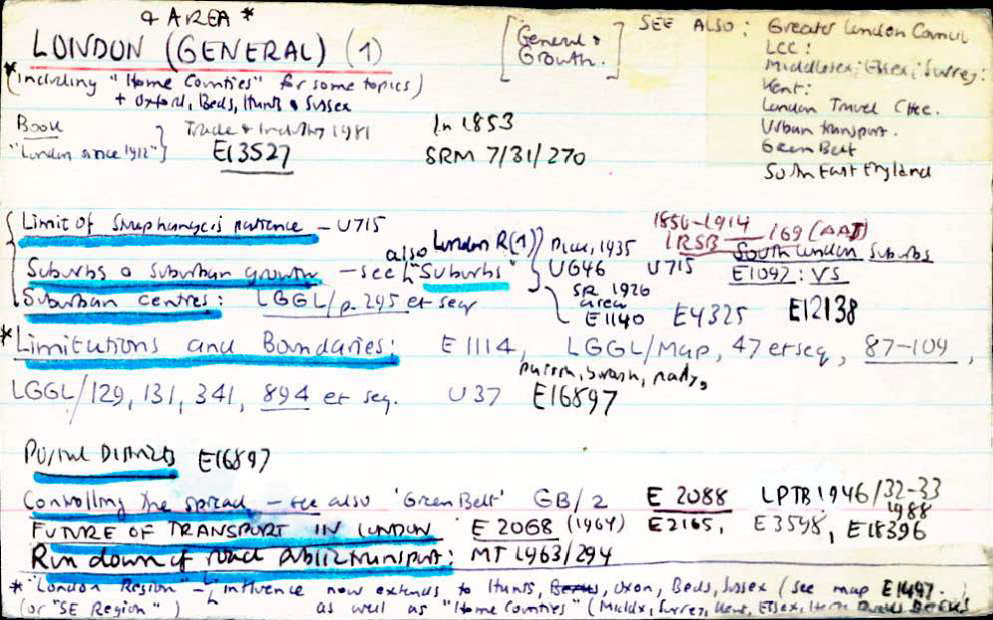 & AREA *
LONDON (GENERAL) (1)
[General & Growth.]
SEE ALSO: Greater London Council
LCC:
Middlesex; Essex; Surrey:
Kent:
London Travel Cttee.
Urban transport.
Green Belt
South East England
*(including "Home Counties" for some topics)
+ Oxford, Beds, Hunts & Sussex
Book
"London since 1912" }
Trade & Industry 1981
E13527
In 1853
SRM 7/31/270
Limit of patience – U715
Suburbs & suburban growth – see also "Suburbs"
London R(1)
Suburban centres: LGGL/p.295 et seq
1935
UG46 U715
SR 1926
area
E1140 E4325 E12138
1856-1914
169 (AAJ)
South London Suburbs
E1097: VS
*Limitations and Boundaries: E1114, LGGL/Map, 47 et seq, 87-109,
LGGL/129, 131, 341, 894 et seq. U37 E16897
Postal Districts E16897
Controlling the spread – see also 'Green Belt' GB/2 E 2088 LPTB 1946/32-33
1988
FUTURE OF TRANSPORT IN LONDON E 2068 (1964) E2165, E3598, E18396
Run down of road public transport: MT 1963/294
* "London Region" – influence now extends to Hunts, Oxon, Beds, Sussex (see map E1497.)
(or "SE Region") as well as "Home Counties" (Middx, Surrey, Kent, Essex, Herts BUCKS